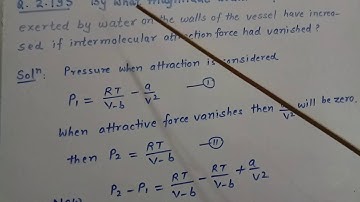 Q. 2.195 By what magnitude
exerted by water on the walls of the vessel have increa-
sed if intermolecular attraction force had vanished?
Solⁿ: Pressure when attraction is considered
P₁ = RT/V-b - a/V² — I
When attractive force vanishes then a/V² will be zero.
then P₂ = RT/V-b — II
P₂ - P₁ = RT/V-b - RT/V-b + a/V²